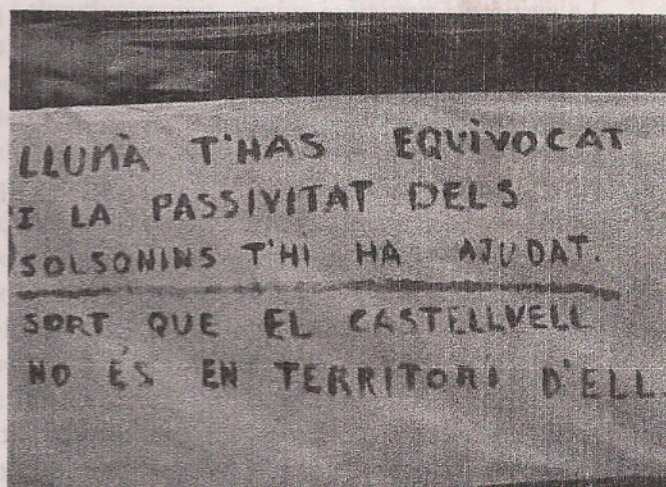 LLUMÀ T'HAS EQUIVOCAT
I LA PASSIVITAT DELS
SOLSONINS T'HI HA AJUDAT.
SORT QUE EL CASTELLVELL
NO ÉS EN TERRITORI D'ELL